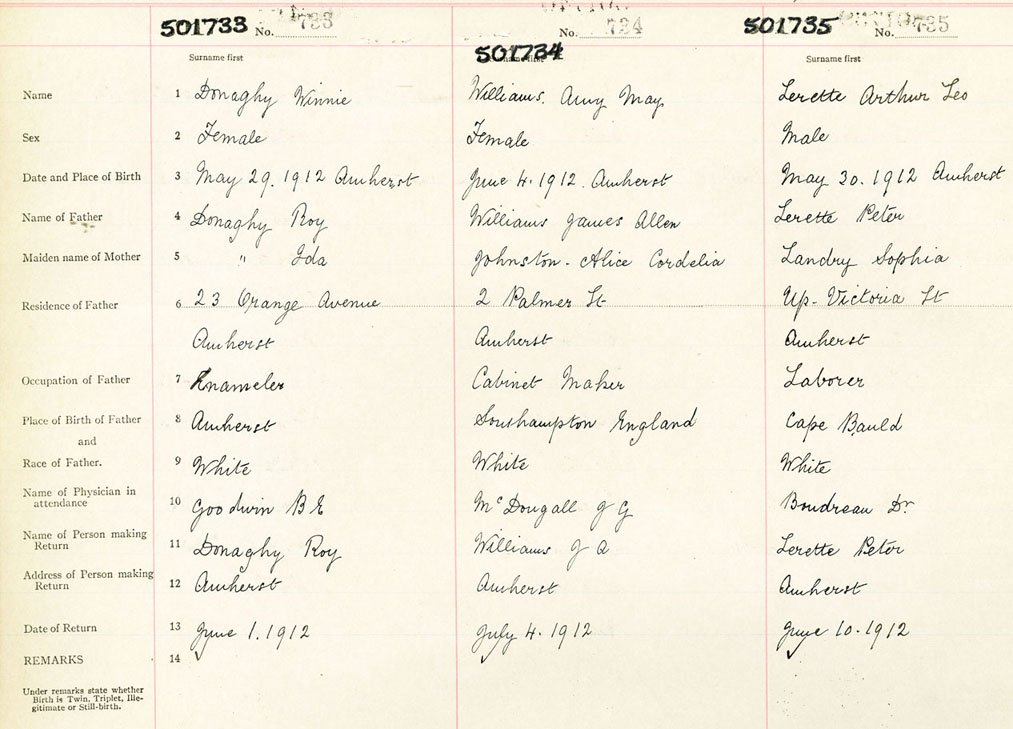 501733 No. 733 501734 No. 734 501735 No. 735
Surname first Surname first Surname first
Name 1 Donaghy Winnie Williams. Amy May Lerette Arthur Leo
Sex 2 Female Female Male
Date and Place of Birth 3 May 29. 1912 Amherst June 4. 1912. Amherst May 30. 1912 Amherst
Name of Father 4 Donaghy Roy Williams James Allen Lerette Peter
Maiden name of Mother 5 " Ida Johnston - Alice Cordelia Landry Sophia
Residence of Father 6 23 Orange Avenue 2 Palmer St Up. Victoria St
Amherst Amherst Amherst
Occupation of Father 7 Enameler Cabinet Maker Laborer
Place of Birth of Father 8 Amherst Southampton England Cape Bauld
and
Race of Father. 9 White White White
Name of Physician in
attendance 10 Goodwin B E McDougall J G Boudreau Dr
Name of Person making
Return 11 Donaghy Roy Williams J A Lerette Peter
Address of Person making
Return 12 Amherst Amherst Amherst
Date of Return 13 June 1. 1912 July 4. 1912 June 10. 1912
REMARKS 14
Under remarks state whether
Birth is Twin, Triplet, Ille-
gitimate or Still-birth.